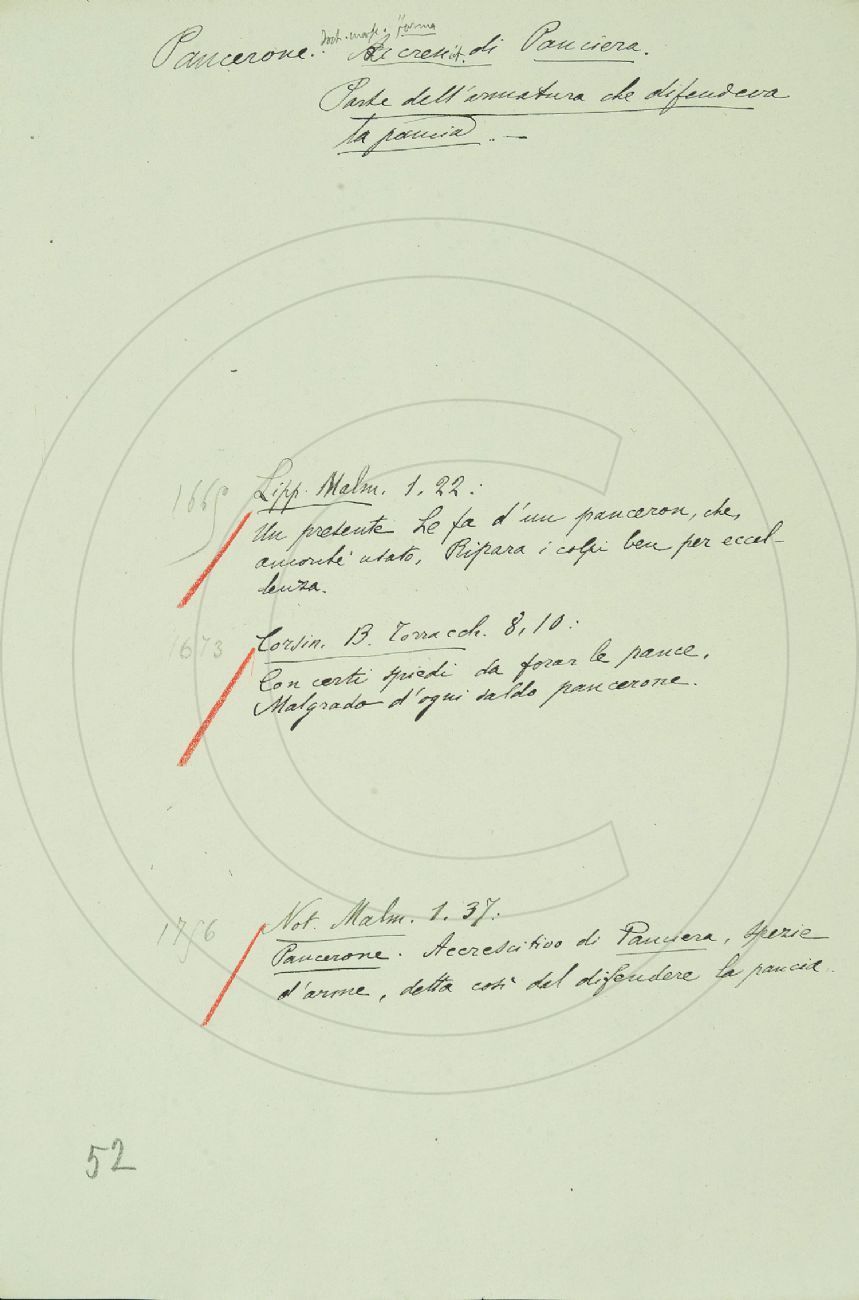 Sost. masc. forma
Pancerone. Accrescit. di Panciera.
Parte dell'armatura che difendeva
la pancia. —
1665 Lipp. Malm. 1. 22:
Un presente Le fa d'un panceron, che,
ancorchè usato, Ripara i colpi ben per eccel-
lenza.
1673 Corsin. B. Torracch. 8, 10:
Con certi spiedi da forar le pance,
Malgrado d'ogni saldo pancerone.
1756 Not. Malm. 1. 37:
Pancerone. Accrescitivo di Panciera, spezie
d'arme, detta così dal difendere la pancia.
52